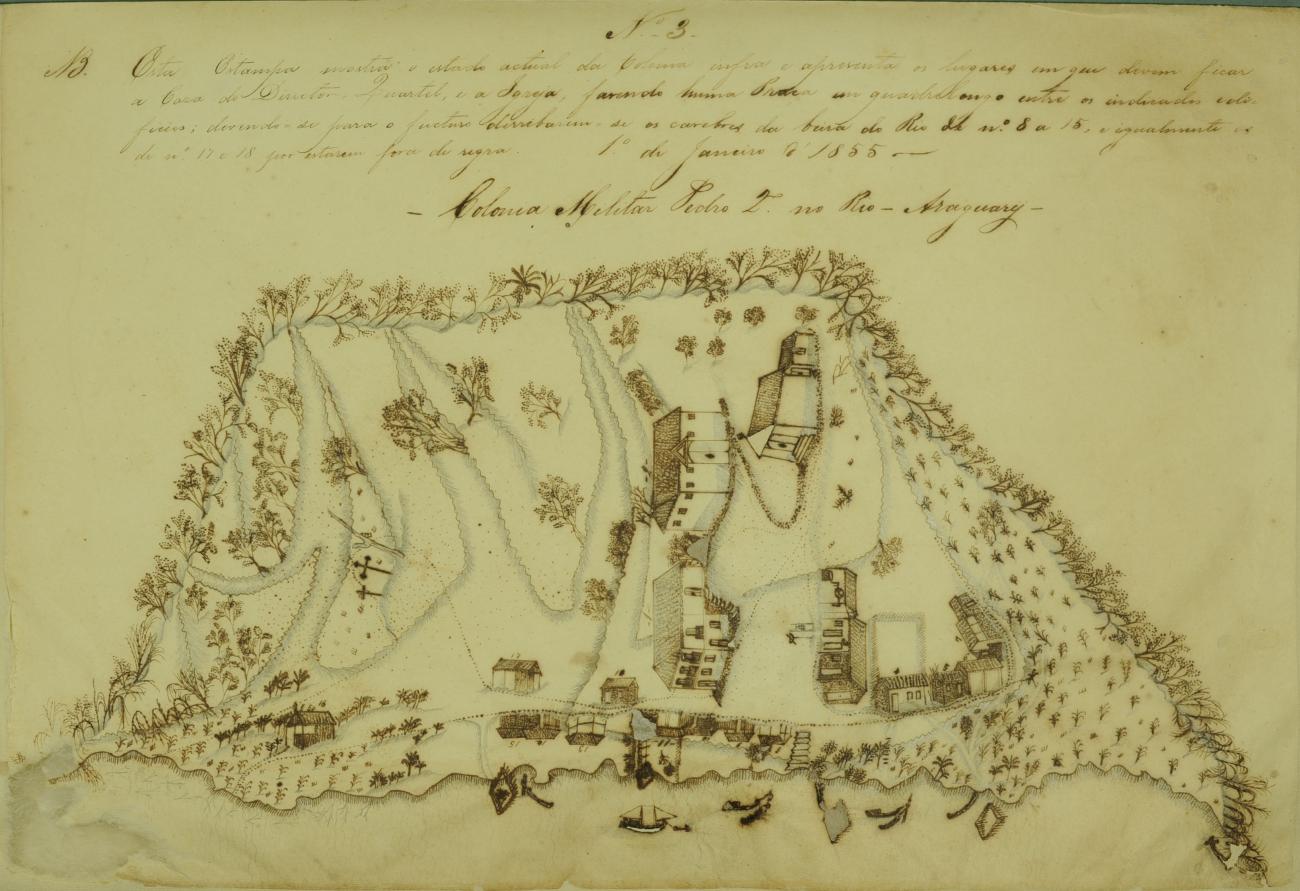 N.º 3.
NB. Esta Estampa mostra o estado actual da Colonia infra e apresenta os lugares em que devem ficar
a Caza do Director, Quartel, e a Igreja, fazendo huma Praça em quadrilongo entre os indicados edi-
ficios; devendo-se para o futuro derribarem-se os casebres da beira do Rio de nº 8 a 15, e igualmente os
de nº 17 e 18 por estarem fora de regra. 1º de Janeiro d' 1855
- Colonia Militar Pedro 2º no Rio - Araguary -